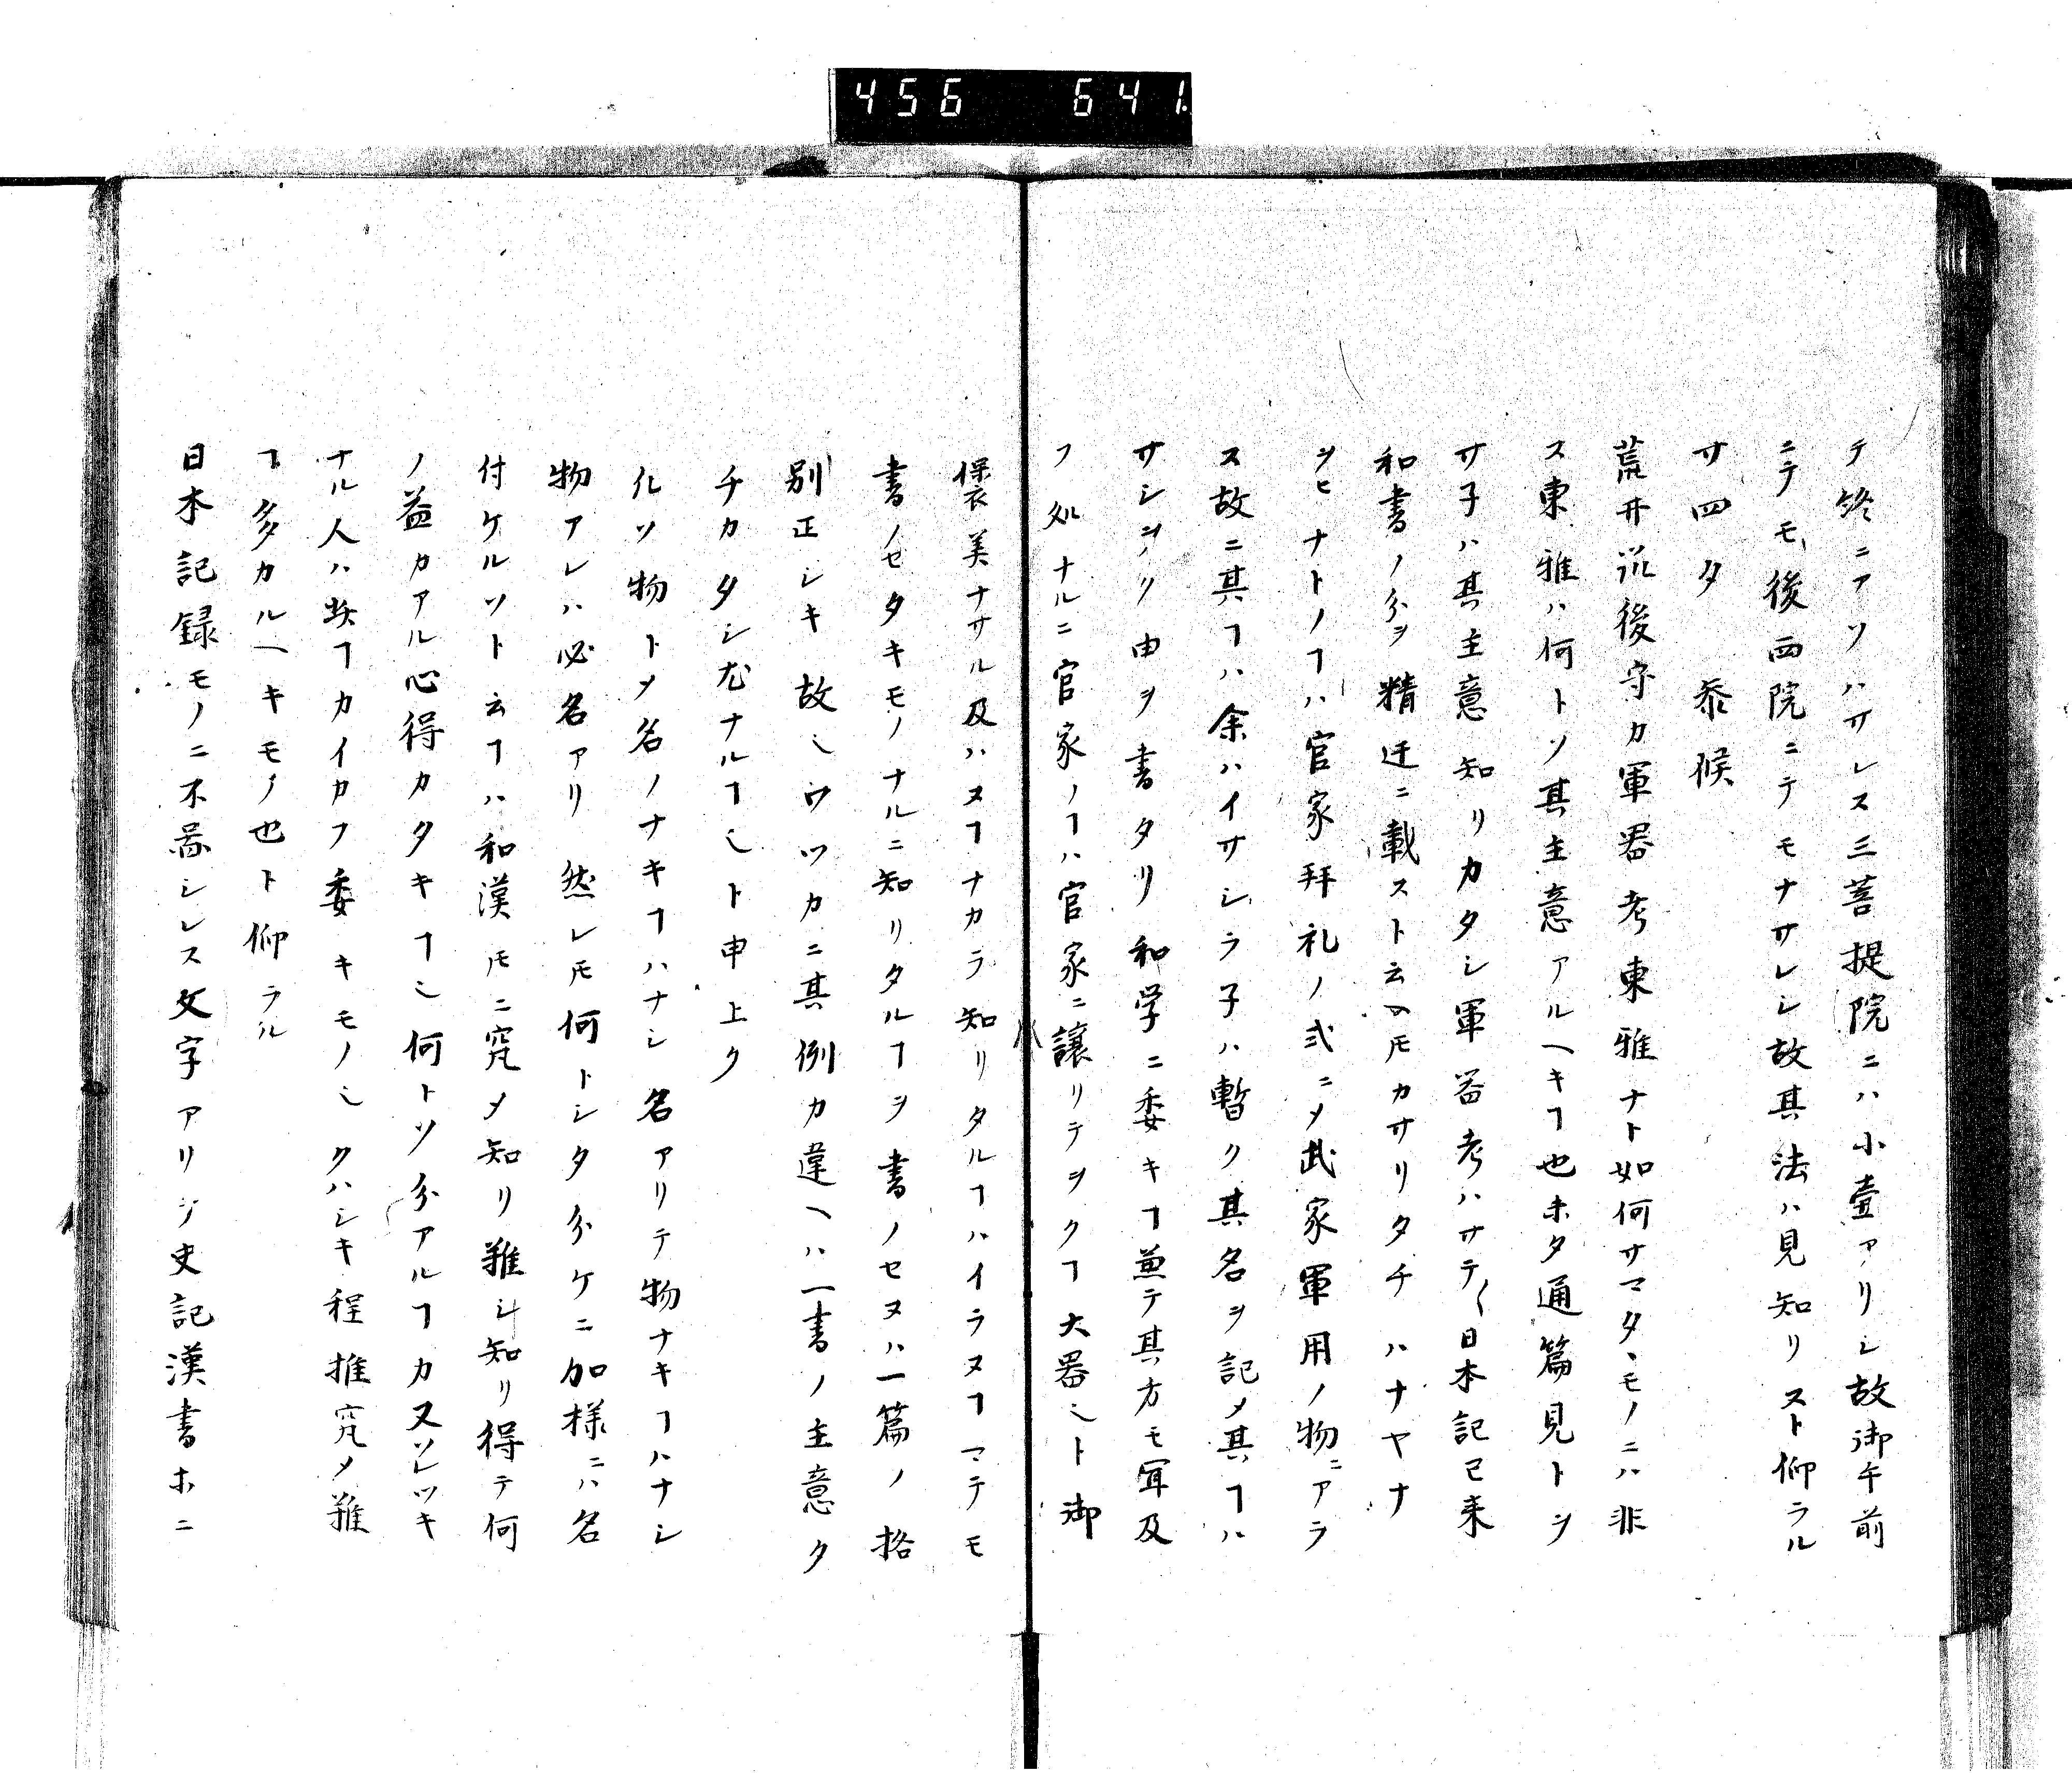 456 641
テ終ニアソハサレス三菩提院ニハ小壹アリシ故御午前
ニテモ後西院ニテモナサレシ故其法ハ見知リスト仰ラル
廿四夕 参候
荒井筑後守カ軍器考東雅ナト如何サマタヽモノニハ非
ス東雅ハ何トソ其主意アルヘキヿ也未タ通篇見トヲ
サ子ハ其主意知リカタシ軍器考ハサテ〱日本記已来
和書ノ分ヲ精迂ニ載スト云ヘ𪜈カサリタチハナヤナ
ヲヒナトノヿハ官家拜礼ノ弐ニメ武家軍用ノ物ニアラ
ス故ニ其ヿハ余ハイサシラ子ハ暫ク其名ヲ記メ其ヿハ
サシヲク由ヲ書タリ和学ニ委キヿ兼テ其方モ冝及
フ処ナルニ官家ノヿハ官家ニ譲リテヲクヿ大器也ト御
褒美ナサル及ハヌヿナカラ知リタルヿハイラヌヿマテモ
書ノセタキモノナルニ知リタルヿヲ書ノセヌハ一篇ノ格
別正シキ故也ワツカニ其例カ違ヘハ一書ノ主意タ
チカタシ尤ナルヿ也ト申上ク
凡ソ物トメ名ノナキヿハナシ名アリテ物ナキヿハナシ
物アレハ必名アリ然レ𪜈何トシタ分ケニ加様ニハ名
付ケルソト云ヿハ和漢𪜈ニ窮メ知リ難シ知リ得テ何
ノ益カアル心得カタキヿ也何トソ分アルヿカ又ソレツキ
ナル人ハ此ヿカイカフ委キモノ也クハシキ程推究メ難
ヿ多カルヘキモノ也ト仰ラル
日本記録モノニ不審シレス文字アリシ史記漢書ホニ